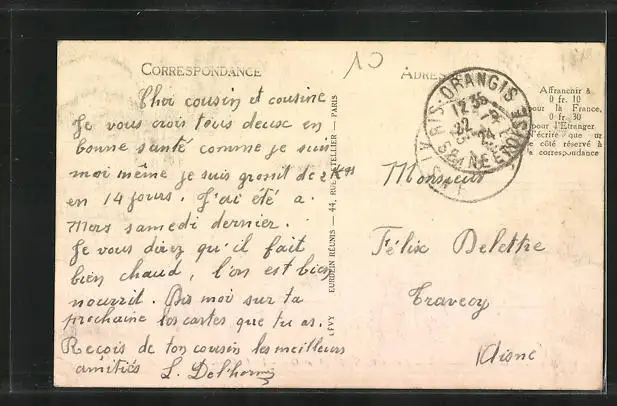 CORRESPONDANCE
10
ADRES
Affranchir à
0 fr. 10
pour la France,
0 fr. 30
pour l'Etranger.
N'écrire que sur
le côté réservé à
la correspondance
RIS-ORANGIS
SEINE ET OISE
12 35
22
LÉVY ET NEURDEIN RÉUNIS — 44, RUE LETELLIER — PARIS
Cher cousin et cousine
Je vous crois tous deux en
bonne santé comme je suis
moi même je suis grossit de 2 K
en 14 jours. J'ai été a
Mors samedi dernier.
Je vous direz qu'il fait
bien chaud, l'on est bien
nourrit. Dis moi sur ta
prochaine les cartes que tu as.
Reçois de ton cousin les meilleurs
amitiés L. Delhorm
Monsieur
Félix Delettre
Travecy
Aisne